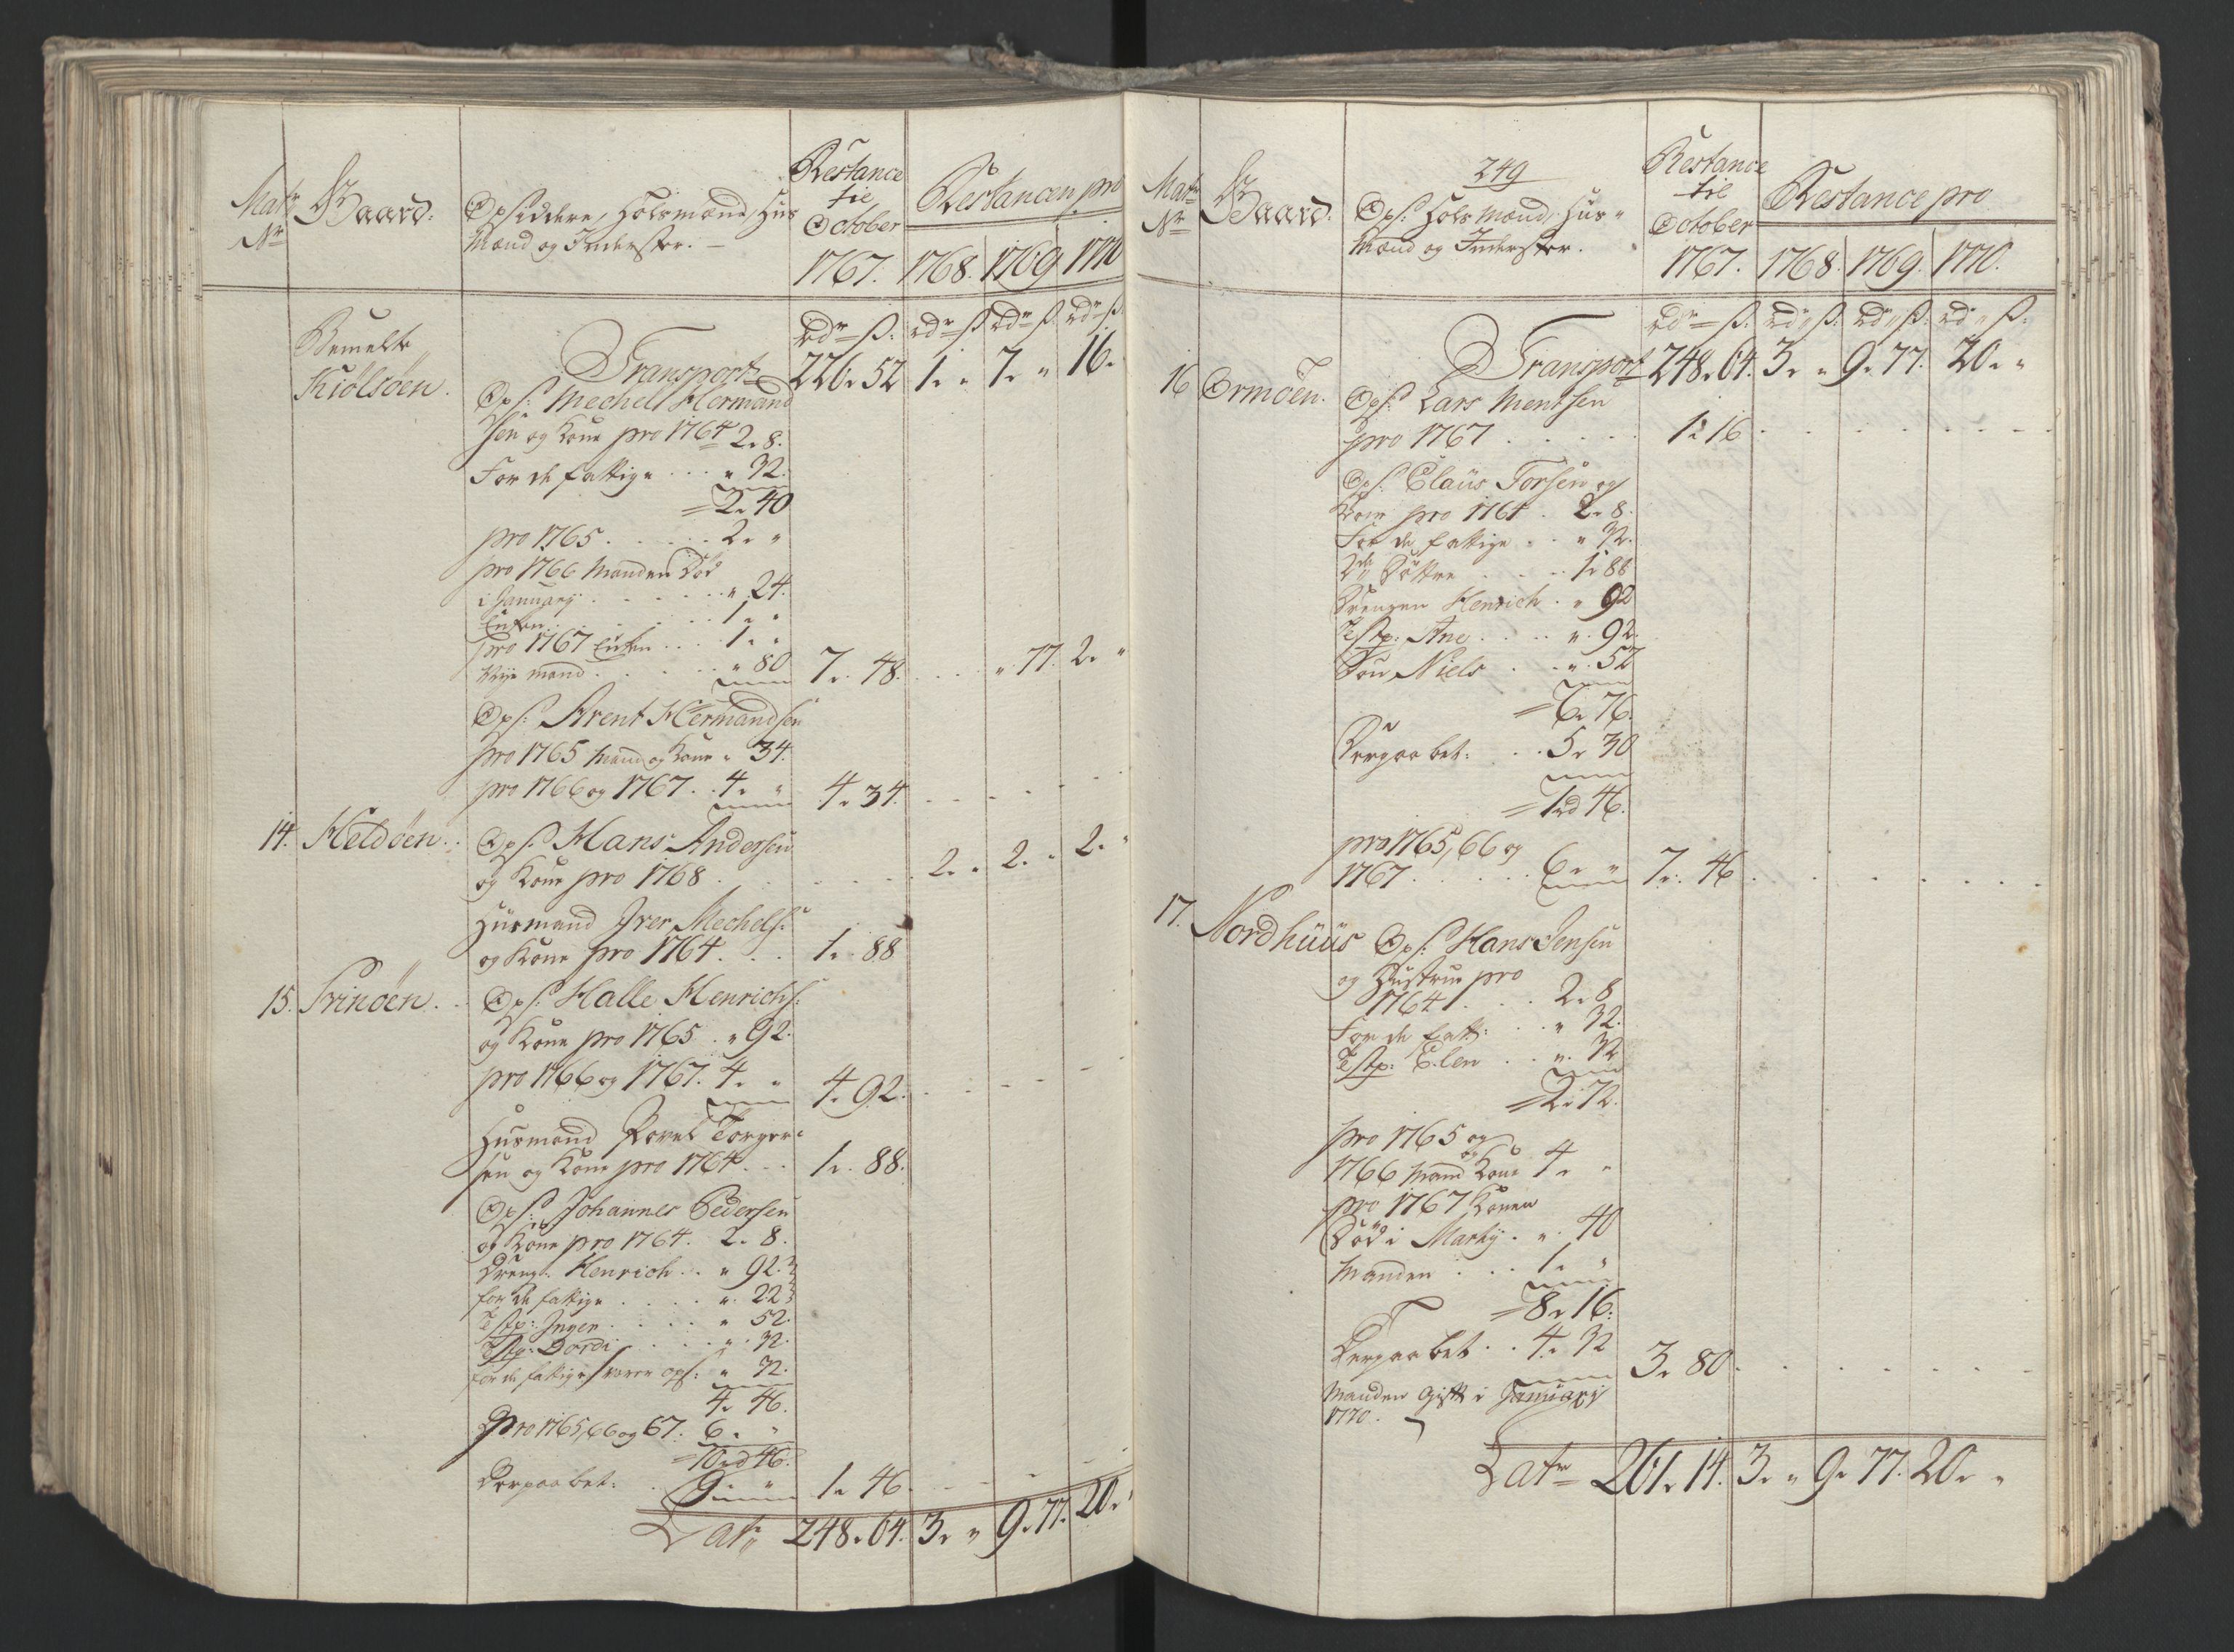 Matr
Nr
Gaard.
Opsiddere, Holsmænd, Huus
Mænd og Inderster. —
Restance
til
October
1767.
Restancen pro
1768. 1769 1770
rdr ß. rdr ß rdr ß. rdr ß.
Bemelte
Kiölsöen.
Transport 226. 52 1. " 7. " 16.
Ops: Mechel Hermand
sen og Kone pro 1764 2. 8.
For de fattige . . . " 32.
2. 40
pro 1765. . . . . . 2. "
pro 1766 Manden död
i January . . . . . . " 24.
Enken . . . . . . 1. "
pro 1767 Enken . . . 1. "
Nye mand . . . . . " 80 7. 48. . . . " 77. 2. "
Ops: Arent Hermandsen
pro 1765 Mand og Kone " 34.
pro 1766 og 1767 . . 4. " 4. 34. - - - - -
14. Heldöen. Ops: Hans Andersen
og Kone pro 1768 . . . . . . 2. " 2. " 2. "
Huusmand Iver Mechels:
og Kone pro 1764 . . . 1. 88
15. Svinöen . . Ops: Halle Henrichs:
og Kone pro 1765 . " 92.
pro 1766 og 1767. 4. " 4. 92. - - - - -
Huusmand Povel Torger=
sen og Kone pro 1764 . . . 1. 88.
Ops: Johannes Pedersen
og Kone pro 1764. 2. 8.
Dreng: Henrich . . " 92.
for de fattige . . . . ". 22
T: stp: Inger . . . . . " 52.
T: stp: Dordi . . . . . ". 32.
for de fattige svarer ops: " 32.
4. 46.
pro 1765, 66 og 67. 6. "
10 rd 46.
Derpaa bet: . 9 " 1. 46. - - - -
Latr 248. 64. 3. " 9. 77. 20. "
249
Matr
Nr
Gaard.
Ops: Holsmænd, Huus=
Mænd og Inderster.
Restance
til
October
1767.
Restance pro
1768. 1769. 1770.
rdr ß. rd ß. rd ß. rd ß.
Transport 248. 64. 3. " 9. 77. 20. "
16 Ormöen. Ops: Lars Mentsen
pro 1767 . . . . . 1. 16 . . . . . . .
Ops: Claüs Torsen og
Kone pro 1764 . 2. 8.
For de fattige . . " 32.
2de Döttre . . . . 1. 88
Drengen Henrich . " 92
T: stp: Ane . . . . ". 92.
Sön Niels . . . ". 52
6. 76.
Derpaa bet: . . 5. 30
1 rd 46.
pro 1765, 66 og
1767 . . . . . 6. " 7. 46 . . . . . . .
17. Nordhüüs Ops: Hans Jensen
og Hustrue pro
1764 . . . 2. 8
For de fatt: . . " 32.
T: stp: Elen . . ". 32
2. 72.
pro 1765 og
1766 Mand og Kone 4. "
pro 1767 Konen
död i Martij . ". 40
Manden . . . 1. "
8. 16.
Derpaa bet . . 4. 32 3. 80 . . . . . . .
Manden Gift i January
1770.
Latr 261. 14. 3. " 9. 77. 20. "